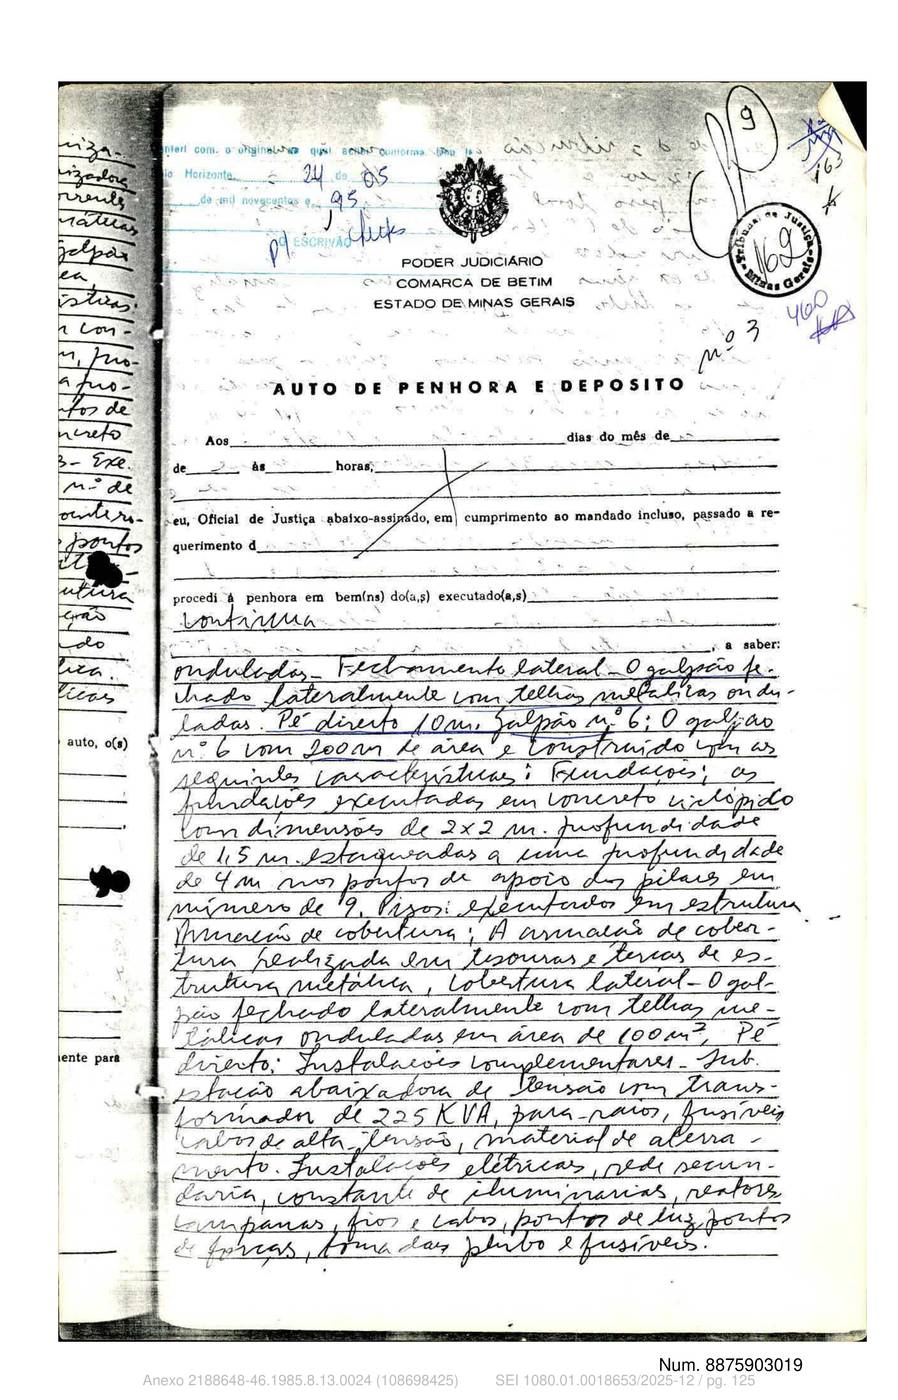 9
163
nferi com. o original ao qual achei conforme. Dou fé
Belo Horizonte, 24 de 05
de mil novecentos e 95
p/ O ESCRIVÃO
Tribunal de Justiça
162
Minas Gerais
460
PODER JUDICIÁRIO
COMARCA DE BETIM
ESTADO DE MINAS GERAIS
nº 3
AUTO DE PENHORA E DEPOSITO
Aos dias do mês de
de às horas,
eu, Oficial de Justiça abaixo-assinado, em cumprimento ao mandado incluso, passado a re-
querimento d
procedi à penhora em bem(ns) do(a,s) executado(a,s)
continua
, a saber:
onduladas - Fechamento lateral - O galpão fe-
chado lateralmente com telhas metálicas ondu-
ladas. Pé direito 10m. Galpão nº 6: O galpão
nº 6 com 200m de área e construído com as
seguintes características: Fundações: as
fundações executadas em concreto ciclópido
com dimensões de 2x2 m. profundidade
de 1,5 m. estaqueadas a uma profundidade
de 4m nos pontos de apoio dos pilares em
número de 9. Pisos: executados em estrutura
Armação de cobertura: A armação de cober-
tura realizada em tesouras e terças de es-
trutura metálica, cobertura lateral - O gal-
pão fechado lateralmente com telhas me-
tálicas onduladas em área de 100m². Pé
direito: Instalações complementares - Sub.
estação abaixadora de tensão com trans-
formador de 225 KVA, para-raios, fusíveis
cabos de alta-tensão, material de aterra-
mento. Instalações elétricas, rede secun-
daria, constante de iluminarias, reatores
campanas, fios e cabos, pontos de luz, pontos
de forças, tomadas e fusíveis.
auto, o(s)
ente para
Num. 8875903019
Anexo 2188648-46.1985.8.13.0024 (108698425) SEI 1080.01.0018653/2025-12 / pg. 125